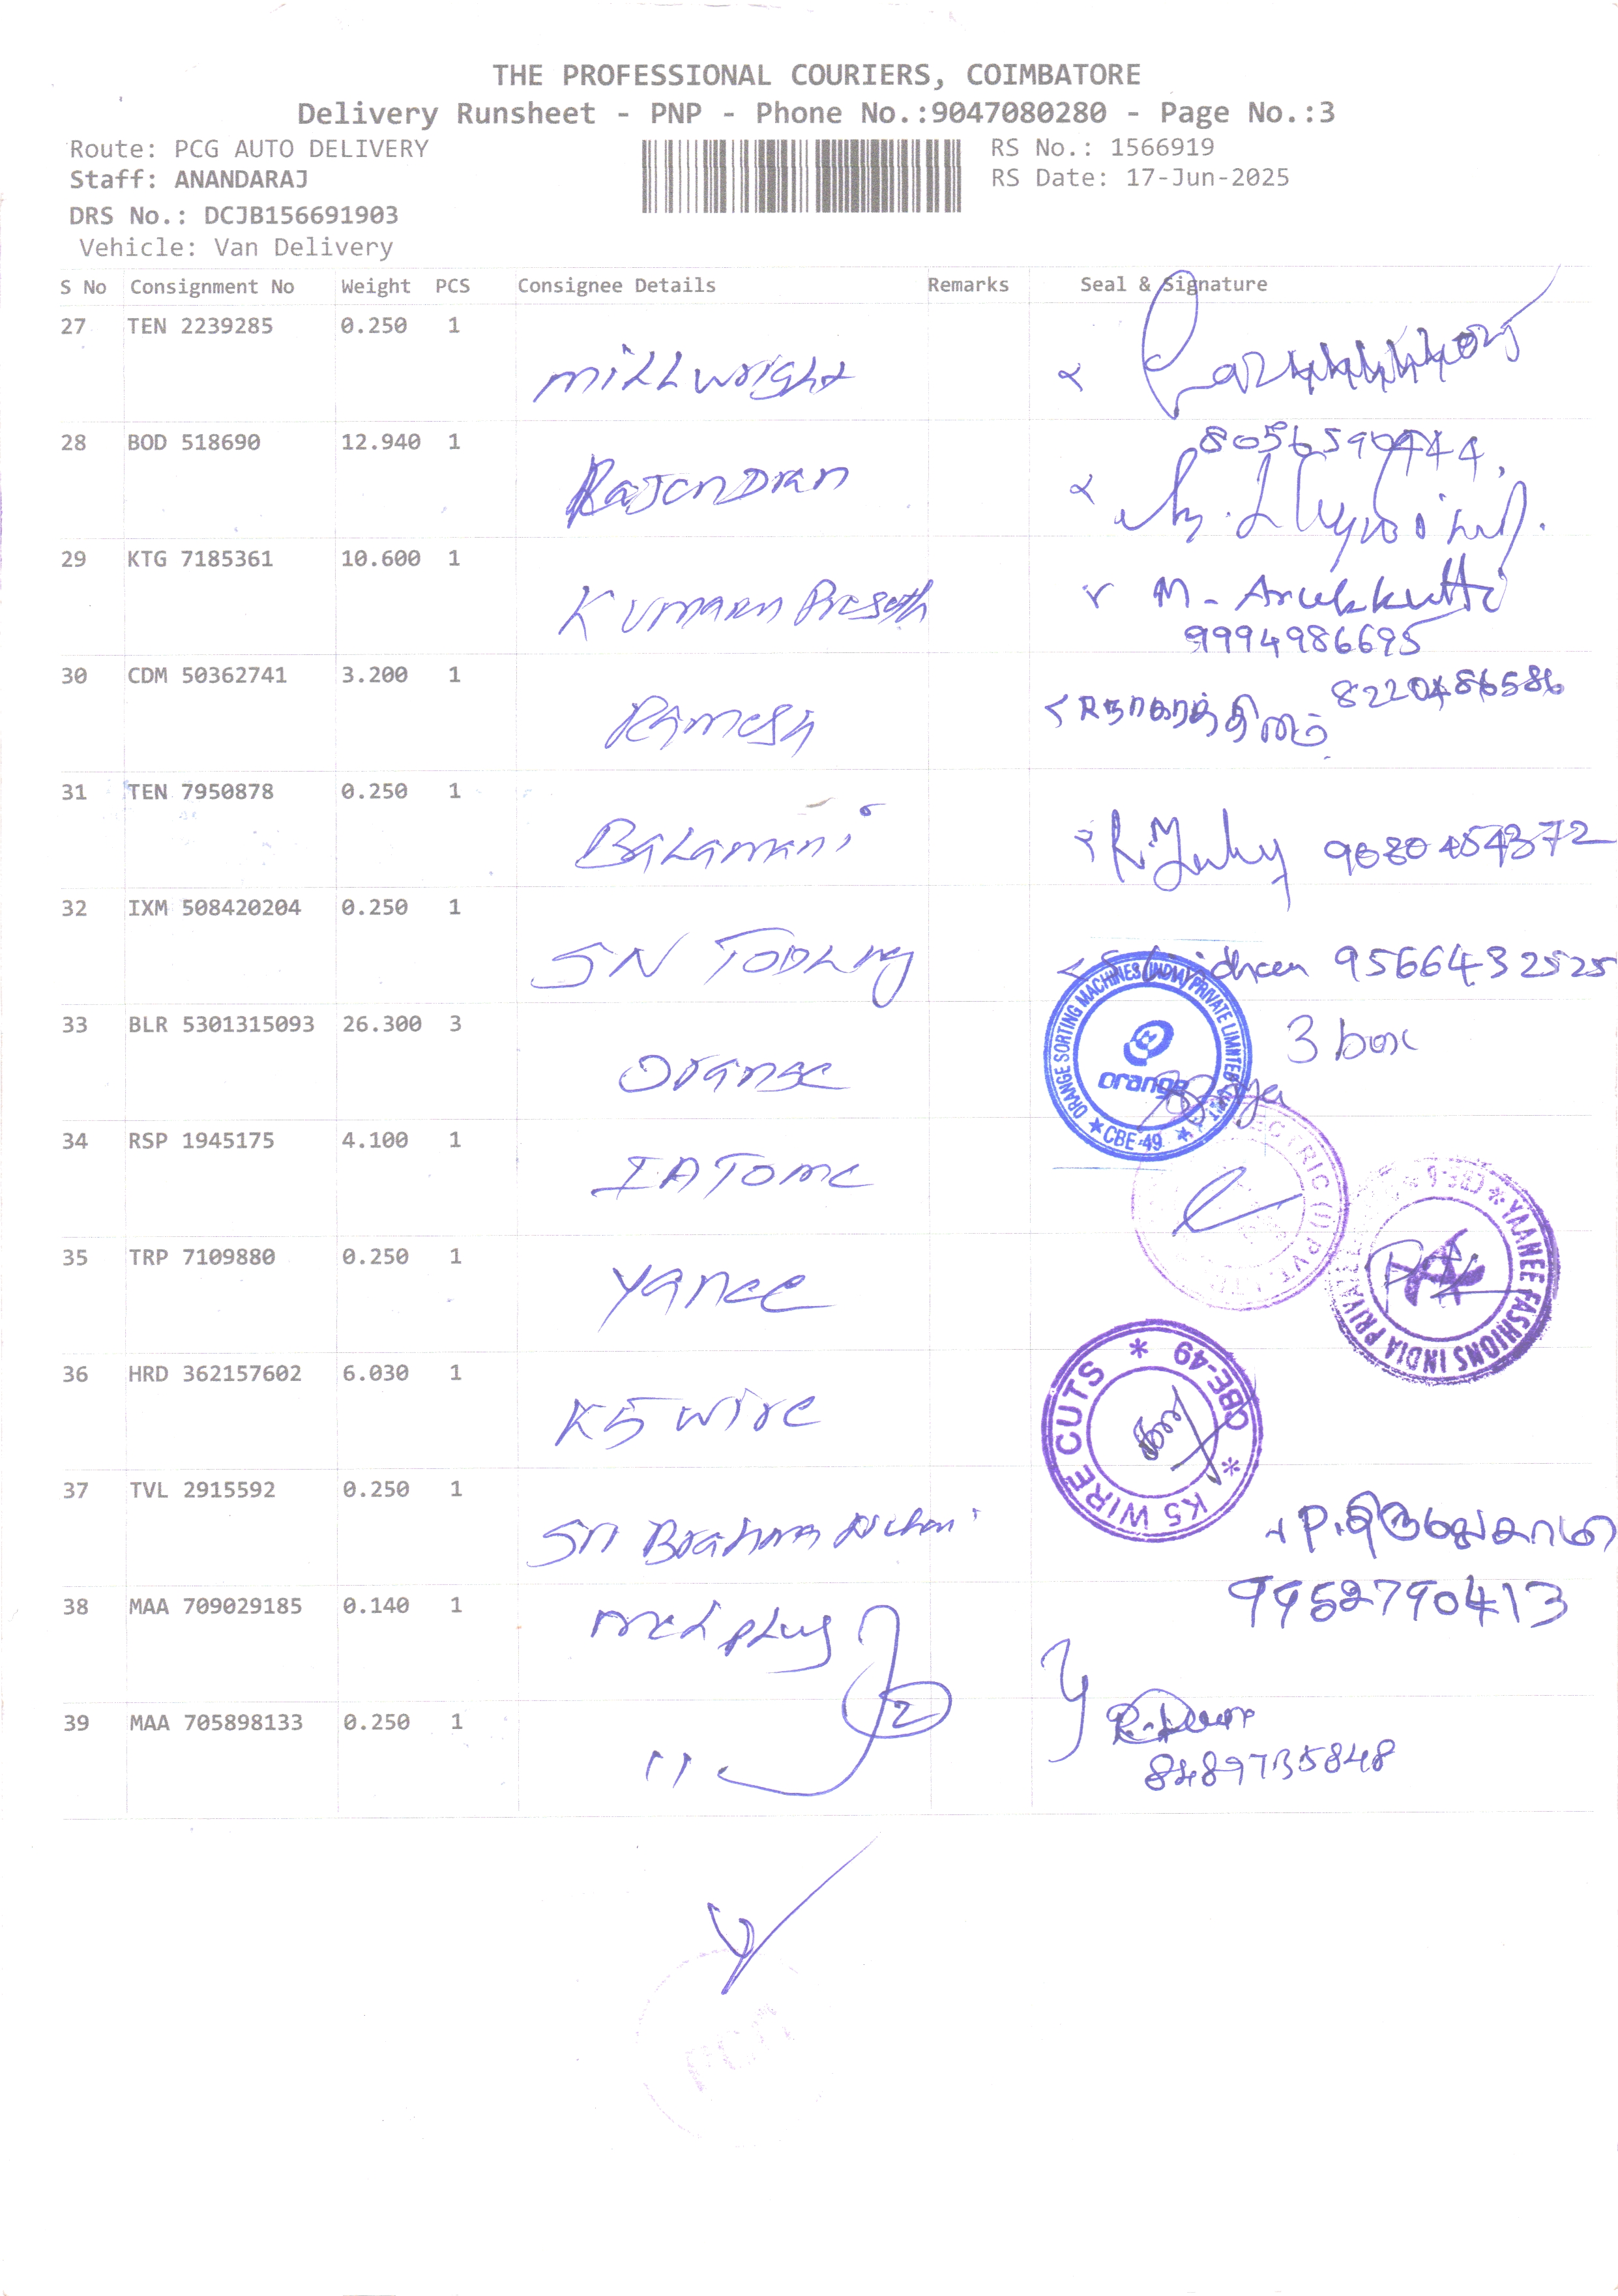 THE PROFESSIONAL COURIERS, COIMBATORE
Delivery Runsheet - PNP - Phone No.:9047080280 - Page No.:3
Route: PCG AUTO DELIVERY
Staff: ANANDARAJ
DRS No.: DCJB156691903
Vehicle: Van Delivery
RS No.: 1566919
RS Date: 17-Jun-2025
S No Consignment No Weight PCS Consignee Details Remarks Seal & Signature
27 TEN 2239285 0.250 1 millwright
28 BOD 518690 12.940 1 Rajendran 8056590444
29 KTG 7185361 10.600 1 Kumaran M. Arukkutti
9994986695
30 CDM 50362741 3.200 1 Ramesh 8220486586
31 TEN 7950878 0.250 1 Balamani 9080454372
32 IXM 508420204 0.250 1 SN 9566432525
33 BLR 5301315093 26.300 3 Orange 3 box
ORANGE SORTING MACHINES (INDIA) PRIVATE LIMITED
orange
CBE-49
34 RSP 1945175 4.100 1 IATOME
35 TRP 7109880 0.250 1 Yanee
YAANEE FASHIONS INDIA
36 HRD 362157602 6.030 1 K5 wire
K5 WIRE CUTS * CBE-49 *
37 TVL 2915592 0.250 1 SN
9952790413
38 MAA 709029185 0.140 1 med plus
2
39 MAA 705898133 0.250 1 "